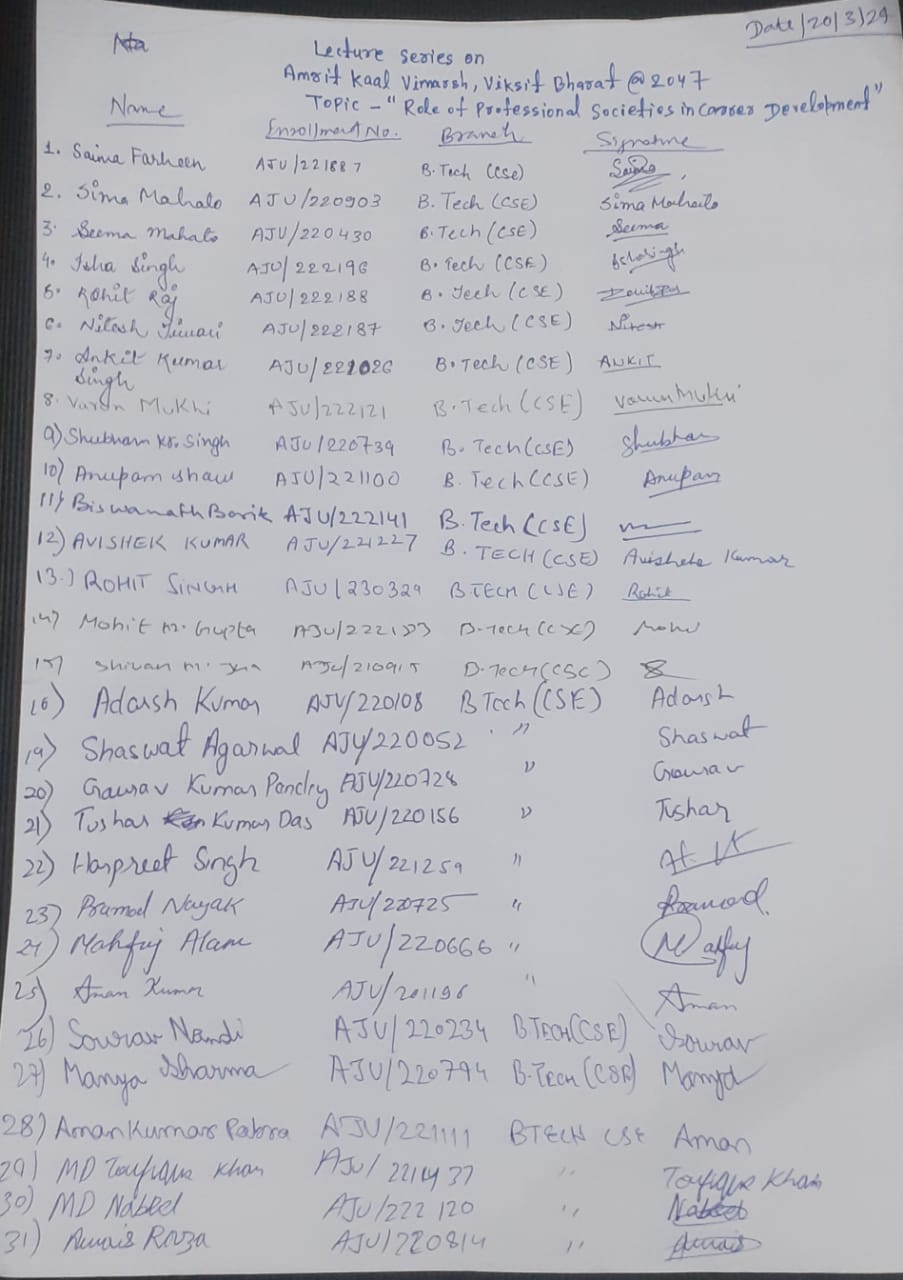 Date/20/3/24
Lecture series on
Amrit Kaal Vimarsh, Viksit Bharat @2047
Topic - "Role of Professional Societies in Career Development"
Name Enrollment No. Branch Signature
1. Saima Farheen AJU/221887 B.Tech (CSE) Saima
2. Sima Mahato AJU/220903 B.Tech (CSE) Sima Mahato
3. Seema Mahato AJU/220430 B.Tech (CSE) Seema
4. Isha Singh AJU/222196 B.Tech (CSE) Ishasingh
5. Rohit Raj AJU/222188 B.Tech (CSE)
6. Nitesh Tiwari AJU/222187 B.Tech (CSE) Nitesh
7. Ankit Kumar AJU/221026 B.Tech (CSE) ANKIT
Singh
8. Varun Mukhi AJU/222121 B.Tech (CSE) Varun Mukhi
9) Shubham Kr. Singh AJU/220739 B.Tech (CSE) Shubham
10) Anupam Shaw AJU/221100 B.Tech (CSE) Anupam
11) Biswanath Barik AJU/222141 B.Tech (CSE)
12) AVISHEK KUMAR AJU/221227 B.TECH (CSE) Avishek Kumar
13.) ROHIT SINGH AJU/230329 B.TECH (CSE) Rohit
14) Mohit M. Gupta B.Tech (CSE) Mohit
15) AJU/210915 B.Tech (CSE)
16) Adarsh Kumar AJU/220108 BTech (CSE) Adarsh
19) Shaswat Agarwal AJU/220052 " Shaswat
20) Gaurav Kumar Pandey AJU/220728 " Gaurav
21) Tushar Kumar Das AJU/220156 " Tushar
22) Harpreet Singh AJU/221259 "
23) Pramod Nayak AJU/220725 " Pramod
24) Mahfuj Alam AJU/220666 " Mahfuj
25) Aman Kumar AJU/201196 " Aman
26) Sourav Nandi AJU/220234 BTECH (CSE) Sourav
27) Manya Sharma AJU/220794 B.Tech (CSE) Manya
28) Aman Kumar Patra AJU/221111 BTECH CSE Aman
29) MD Toufique Khan " Toufique Khan
30) MD Nabeel AJU/222120 " Nabeel
31) Awais Roza AJU/220814 " Awais